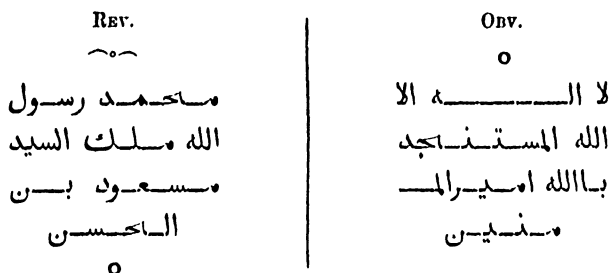 REV.
محمد رسول
الله ملك السيد
مسعود بن
الحسن
OBV.
لا اله الا
الله المستنجد
باالله اميرالمـ
منين